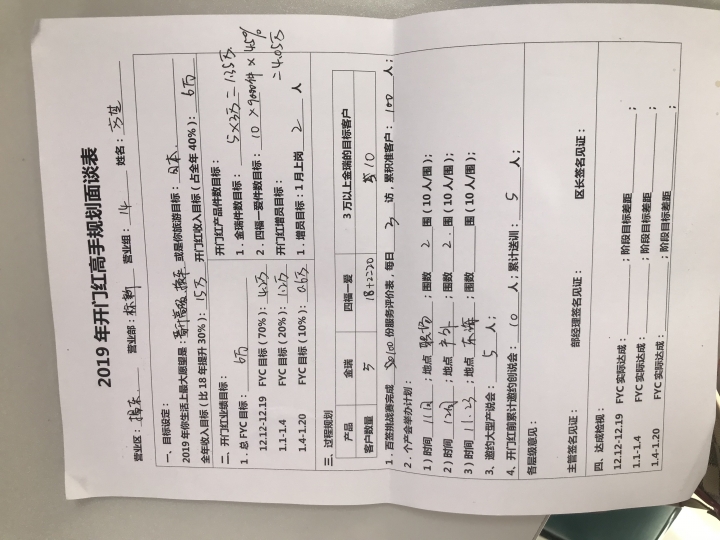 2019年开门红高手规划面谈表
营业区： 营业部： 营业组：14 姓名：
一、目标设定：
2019年你生活上最大愿望是： 或是你旅游目标：日本.
全年收入目标（比18年提升30%）：15万 开门红收入目标（占全年40%）：6万
二、开门红业绩目标： 开门红产品件数目标：
1．总FYC目标：6万 1．金瑞件数目标：5×3万=15万
12.12-12.19 FYC目标（70%）：4.2万 2．四福一爱件数目标：10×9000件×45%=4.05万
1.1-1.4 FYC目标（20%）：1.2万 开门红增员目标：
1.4-1.20 FYC目标（10%）：0.6万 1．增员目标：1月上岗 2 人
三、过程规划
产品 金瑞 四福一爱 3万以上金瑞的目标客户
客户数量 5 18+2=20 10
1．百签挑战赛完成 100 份服务评价表，每日 3 访，累积准客户：100 人；
2．个产会举办计划：
1）时间 ；地点 职场；围数 2 围（10人/围）；
2）时间 ；地点 ；围数 2. 围（10人/围）；
3）时间 11.23；地点 ；围数 围（10人/围）；
3、邀约大型产说会： 5 人；
4、开门红前累计邀约创说会： 10 人；累计送训： 5 人；
各层级意见：
主管签名见证： 部经理签名见证： 区长签名见证：
四、达成检视：
12.12-12.19 FYC实际达成： ；阶段目标差距 ；
1.1-1.4 FYC实际达成： ；阶段目标差距 ；
1.4-1.20 FYC实际达成： ；阶段目标差距 ；